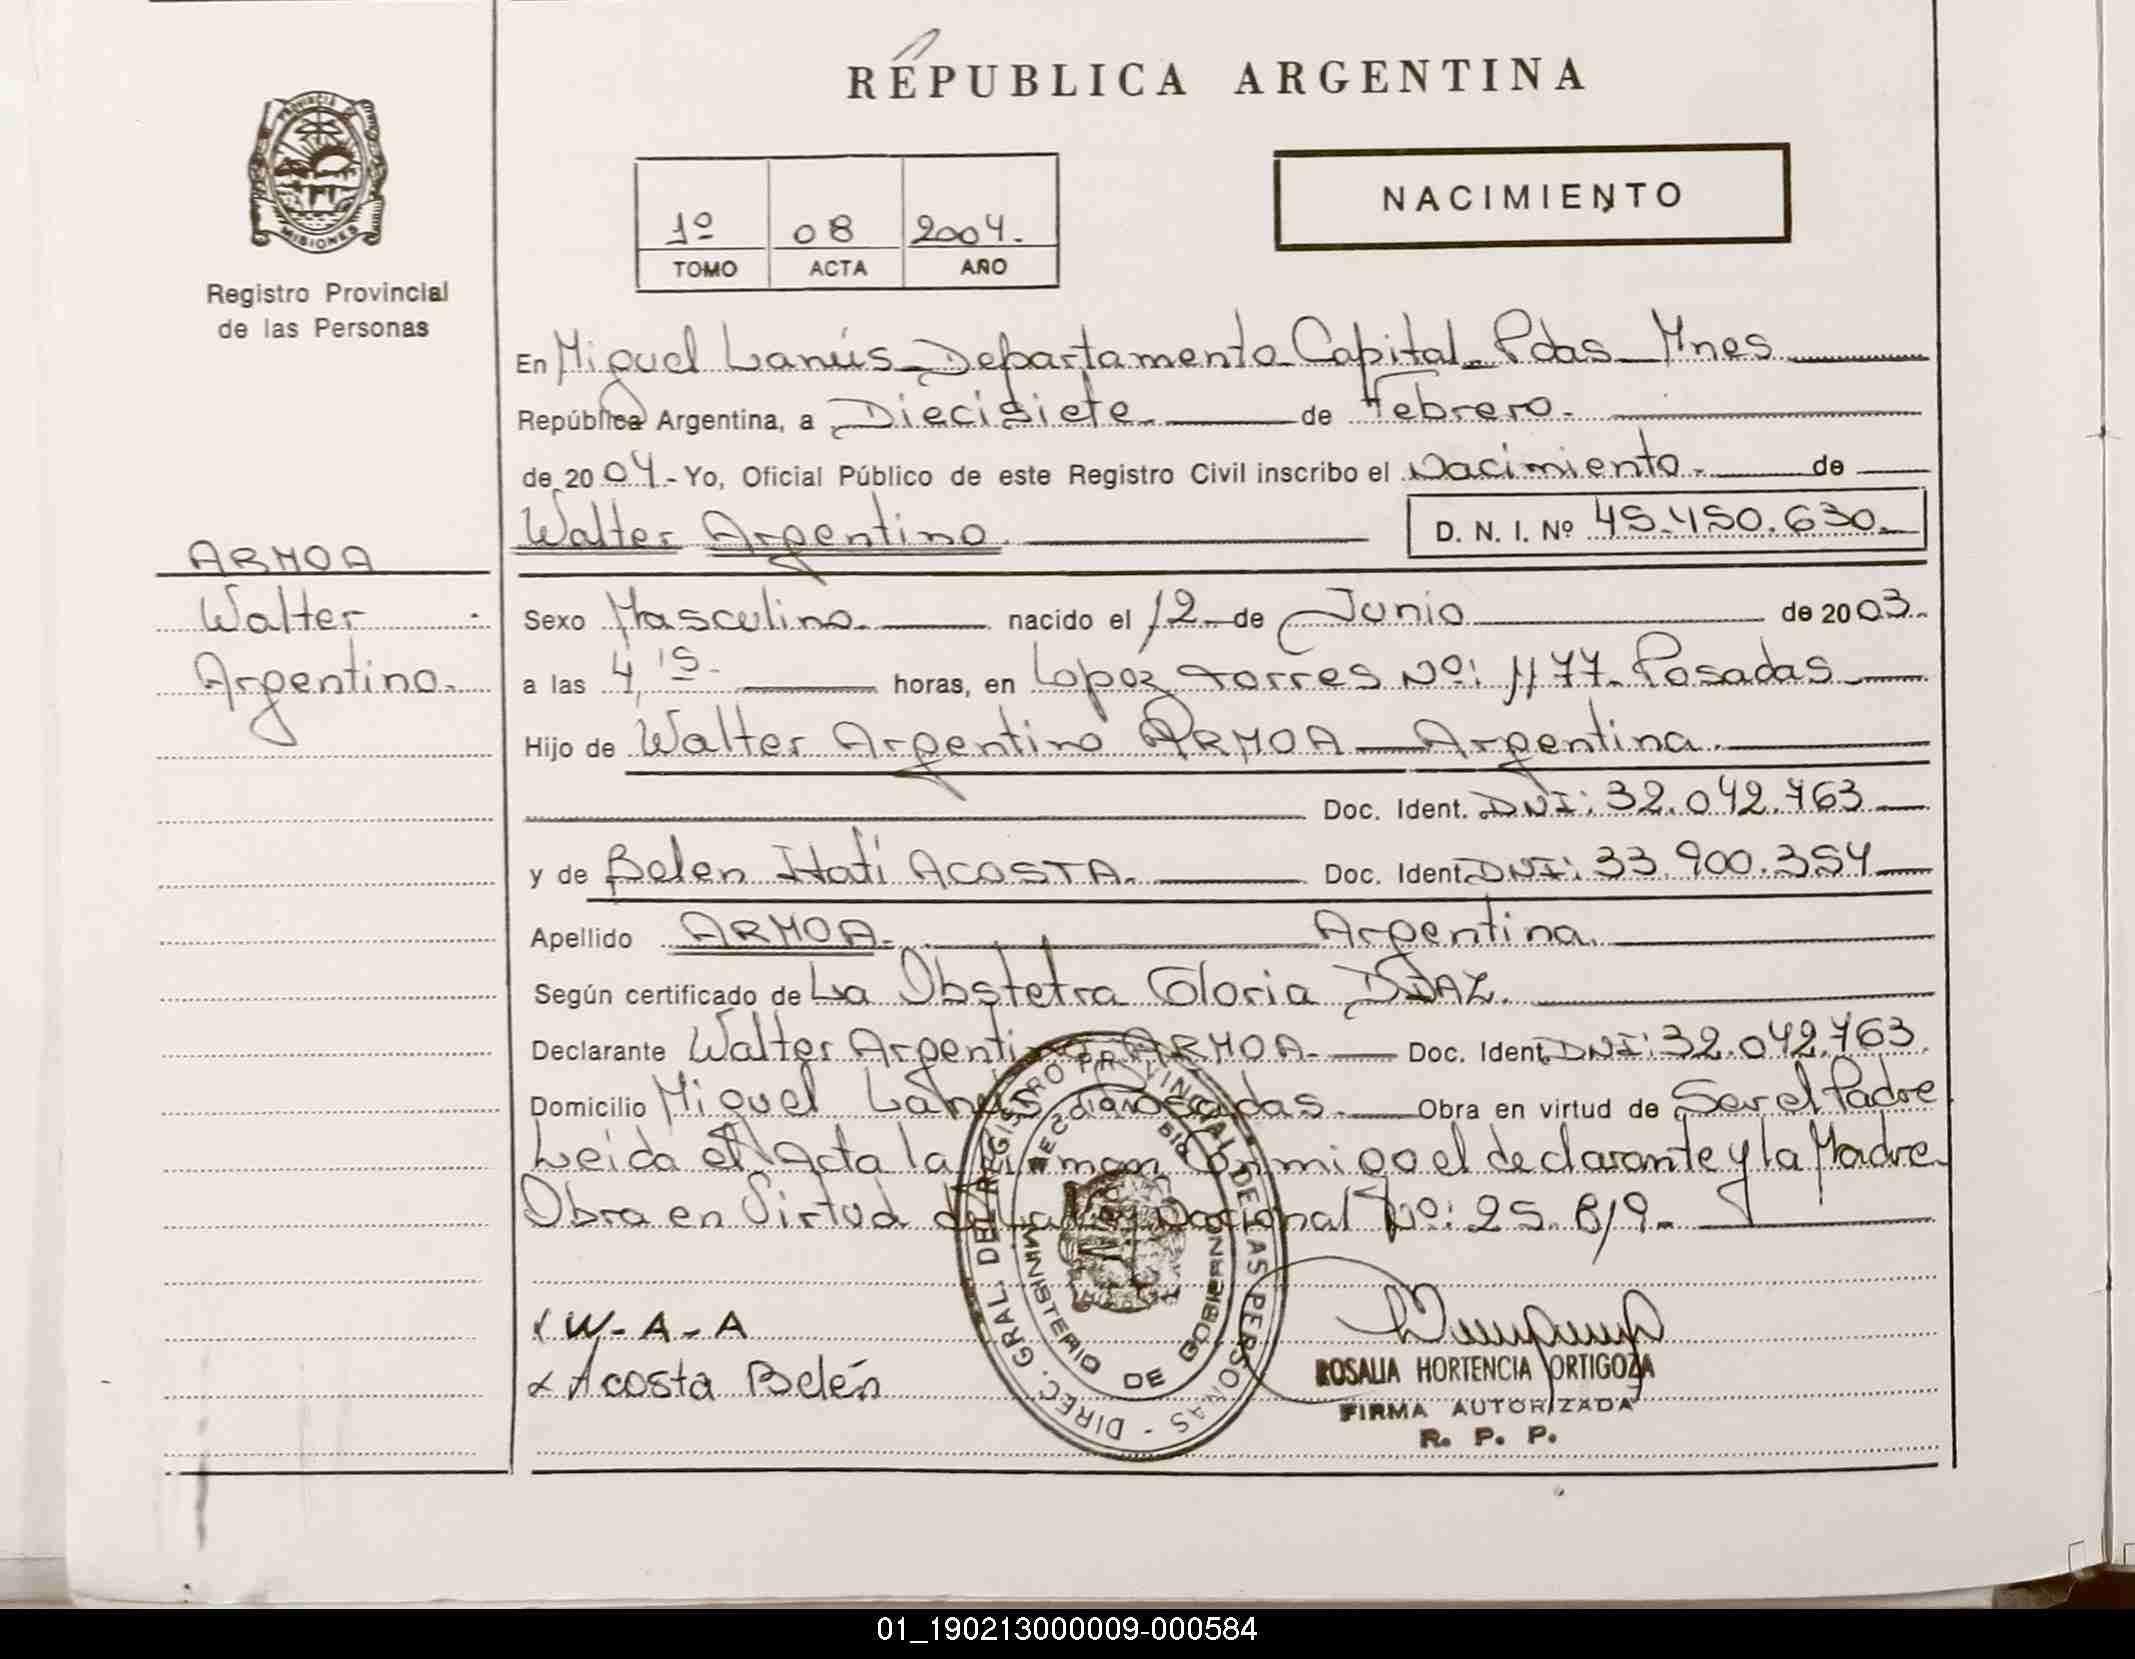 REPUBLICA ARGENTINA
PROVINCIA DE
MISIONES
Registro Provincial
de las Personas
1º 08 2004.
TOMO ACTA AÑO
NACIMIENTO
En Miguel Lanús Departamento Capital Pdas Mnes
República Argentina, a Diecisiete de Febrero.
de 2004.- Yo, Oficial Público de este Registro Civil inscribo el Nacimiento. de
Walter Argentino D. N. I. Nº 45.450.630
ARMOA
Walter
Argentino.
Sexo Masculino nacido el 12 de Junio de 2003.
a las 4,15 horas, en Lopez Torres Nº: 1177 Posadas
Hijo de Walter Argentino ARMOA Argentina.
Doc. Ident. DNI: 32.042.763
y de Belen Itatí ACOSTA. Doc. Ident. DNI: 33.900.354
Apellido ARMOA. Argentina.
Según certificado de La Obstetra Gloria DIAZ.
Declarante Walter Argentino ARMOA. Doc. Ident. DNI: 32.042.763.
Domicilio Miguel Lanús Posadas. Obra en virtud de Ser el Padre
Leida el Acta la firman Conmigo el declarante y la Madre
Obra en Virtud de Nacional Nº: 25.819.
DIREC. GRAL. DEL REGISTRO PROVINCIAL DE LAS PERSONAS
MINISTERIO DE GOBIERNO
W-A-A
Acosta Belén
ROSALIA HORTENCIA ORTIGOZA
FIRMA AUTORIZADA
R. P. P.
01_190213000009-000584